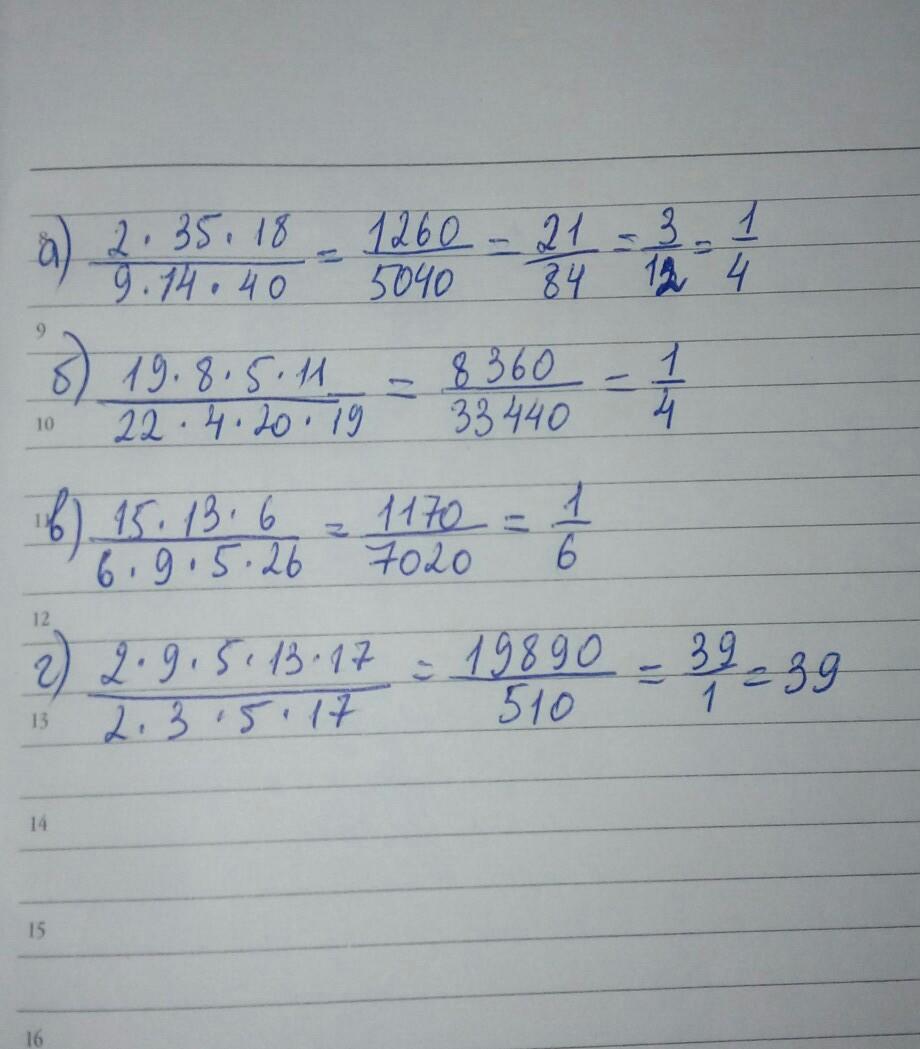 а) 2·35·18/9·14·40 = 1260/5040 = 21/84 = 3/12 = 1/4
9
б) 19·8·5·11/22·4·20·19 = 8360/33440 = 1/4
10
11
в) 15·13·6/6·9·5·26 = 1170/7020 = 1/6
12
г) 2·9·5·13·17/2·3·5·17 = 19890/510 = 39/1 = 39
13
14
15
16